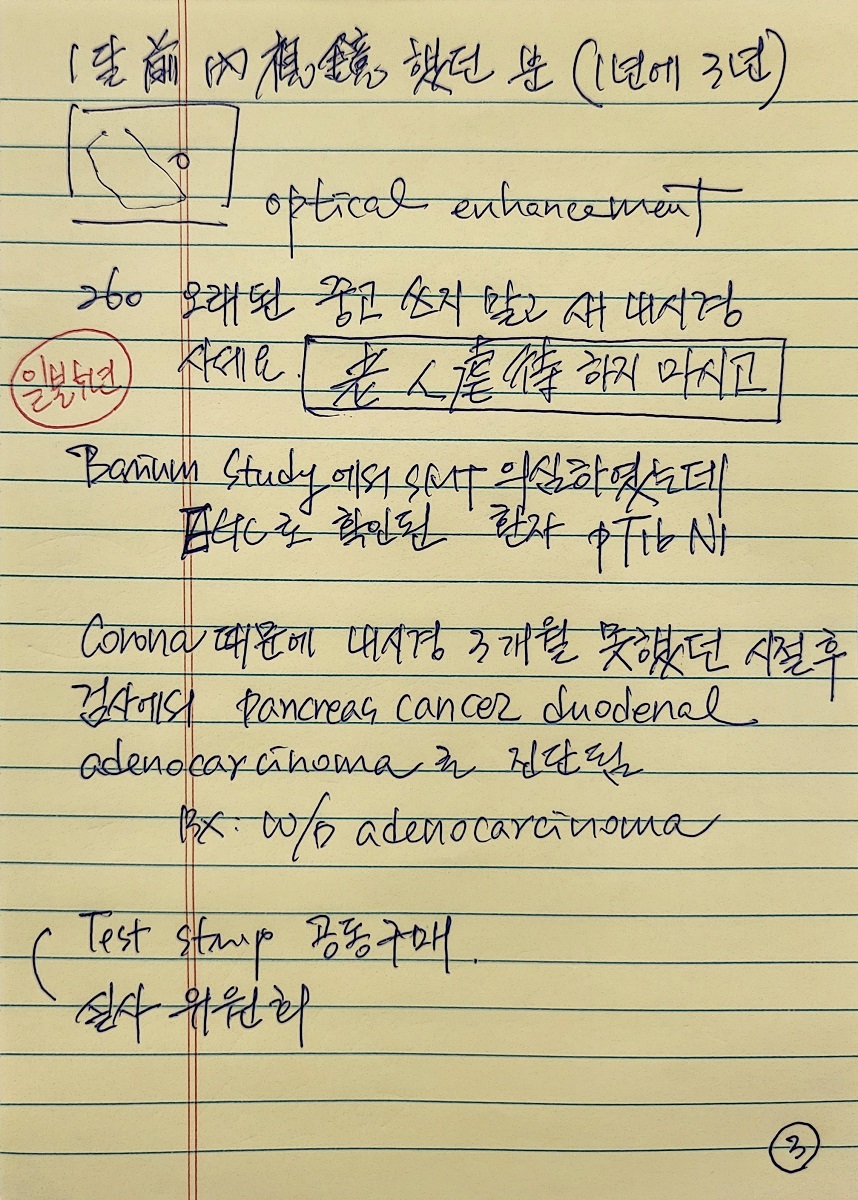 1달 前 內視鏡 했던 분 (1년에 3번)
optical enhancement
260 오래된 중고 쓰지 말고 새 내시경
사세요. 老人虐待 하지 마시고
일본
Barium study에서 SMT 의심하였는데
EGC로 확인된 환자 pT1b N1
Corona 때문에 내시경 3개월 못했던 시절 후
검사에서 pancreas cancer duodenal
adenocarcinoma로 진단됨
Bx: w/d adenocarcinoma
Test 공동구매.
실사 위원회
3